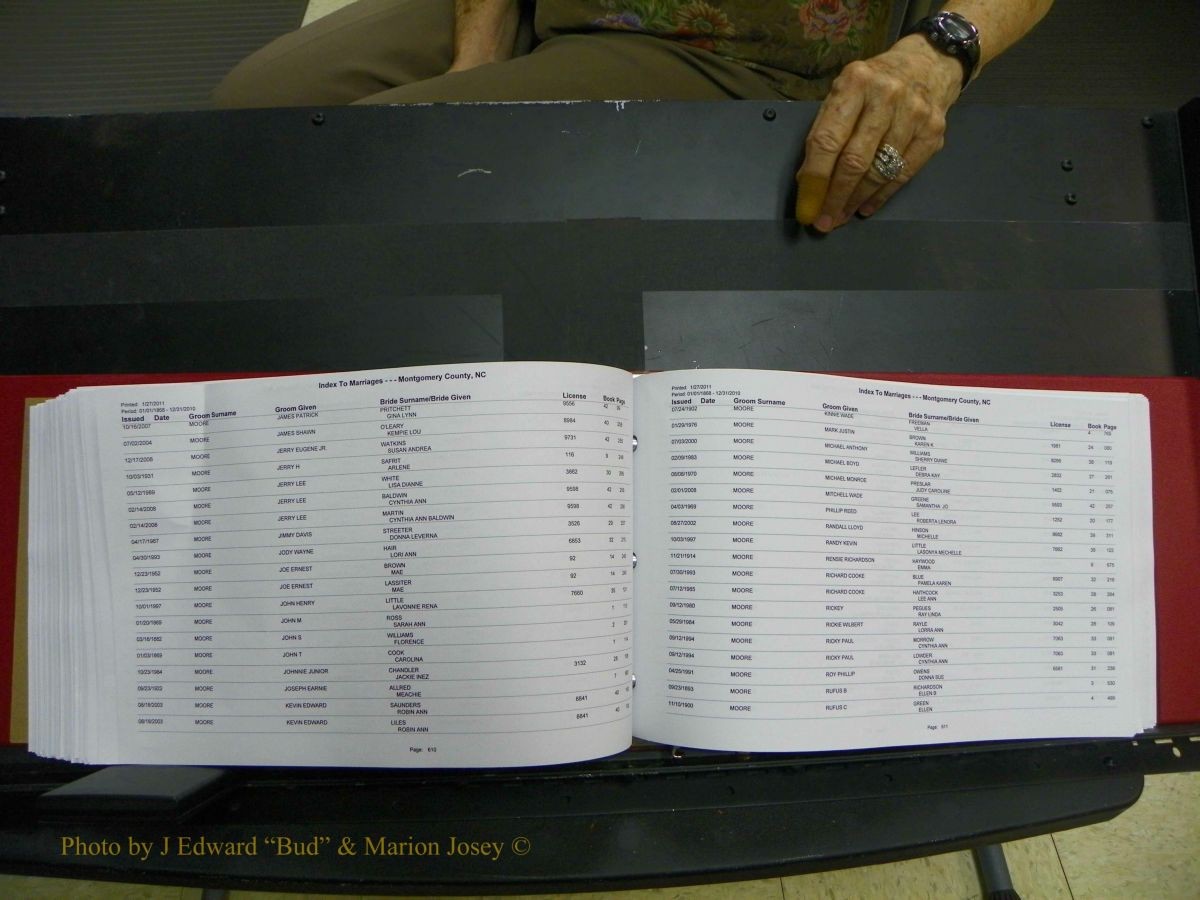 Index To Marriages - - - Montgomery County, NC
Printed: 1/27/2011
Period: 01/01/1868 - 12/31/2010
Issued Date Groom Surname Groom Given Bride Surname/Bride Given License Book Page
10/16/2007 MOORE JAMES PATRICK PRITCHETT 9556 42
GINA LYNN
07/02/2004 MOORE JAMES SHAWN O'LEARY 8984 40
KEMPIE LOU
12/17/2008 MOORE JERRY EUGENE JR. WATKINS 9731 43
SUSAN ANDREA
10/03/1931 MOORE JERRY H SAFRIT 116 9
ARLENE
05/12/1989 MOORE JERRY LEE WHITE 3662 30
LISA DIANNE
02/14/2008 MOORE JERRY LEE BALDWIN 9598 42
CYNTHIA ANN
02/14/2008 MOORE JERRY LEE MARTIN 9598 42
CYNTHIA ANN BALDWIN
04/17/1987 MOORE JIMMY DAVIS STREETER 3526 29
DONNA LEVERNA
04/30/1993 MOORE JODY WAYNE HAIR 6853 32
LORI ANN
12/23/1952 MOORE JOE ERNEST BROWN 92 14
MAE
12/23/1952 MOORE JOE ERNEST LASSITER 92 14
MAE
10/01/1997 MOORE JOHN HENRY LITTLE 7660 35
LAVONNIE RENA
01/20/1869 MOORE JOHN M ROSS 1
SARAH ANN
03/16/1882 MOORE JOHN S WILLIAMS 2
FLORENCE
01/03/1869 MOORE JOHN T COOK 1
CAROLINA
10/23/1984 MOORE JOHNNIE JUNIOR CHANDLER 3132 28
JACKIE INEZ
09/23/1922 MOORE JOSEPH EARNIE ALLRED 7
MEACHIE
08/18/2003 MOORE KEVIN EDWARD SAUNDERS 8841 40
ROBIN ANN
08/18/2003 MOORE KEVIN EDWARD LILES 8841 40
ROBIN ANN
Page: 610
Printed: 1/27/2011
Period: 01/01/1868 - 12/31/2010
Index To Marriages - - - Montgomery County, NC
Issued Date Groom Surname Groom Given Bride Surname/Bride Given License Book Page
07/24/1902 MOORE KINNIE WADE FREEMAN 4 765
VELLA
01/29/1976 MOORE MARK JUSTIN BROWN 1981 24 080
KAREN K
07/03/2000 MOORE MICHAEL ANTHONY WILLIAMS 8286 38 119
SHERRY DIANE
02/09/1983 MOORE MICHAEL BOYD LEFLER 2832 27 201
DEBRA KAY
08/08/1970 MOORE MICHAEL MONROE PRESLAR 1403 21 075
JUDY CAROLINE
02/01/2008 MOORE MITCHELL WADE GREENE 42 257
SAMANTHA JO
04/03/1969 MOORE PHILLIP REED LEE 1252 20 177
ROBERTA LENORA
08/27/2002 MOORE RANDALL LLOYD HINSON 39 311
MICHELLE
10/03/1997 MOORE RANDY KEVIN LITTLE 7662 35 122
LASONYA MECHELLE
11/21/1914 MOORE RENSIE RICHARDSON HAYWOOD 6 675
EMMA
07/30/1993 MOORE RICHARD COOKE BLUE 6907 32 216
PAMELA KAREN
07/12/1985 MOORE RICHARD COOKE HAITHCOCK 3253 28 204
LEE ANN
09/12/1980 MOORE RICKEY PEGUES 2505 26 081
RAY LINDA
05/29/1984 MOORE RICKIE WILBERT RAYLE 3042 28 129
LORRA ANN
09/12/1994 MOORE RICKY PAUL MORROW 7063 33 081
CYNTHIA ANN
09/12/1994 MOORE RICKY PAUL LOWDER 7063 33 081
CYNTHIA ANN
04/25/1991 MOORE ROY PHILLIP OWENS 6581 31 238
DONNA SUE
09/23/1893 MOORE RUFUS B RICHARDSON 3 530
ELLEN B
11/10/1900 MOORE RUFUS C GREEN 4 499
ELLEN
Page: 611
Photo by J Edward “Bud” & Marion Josey ©